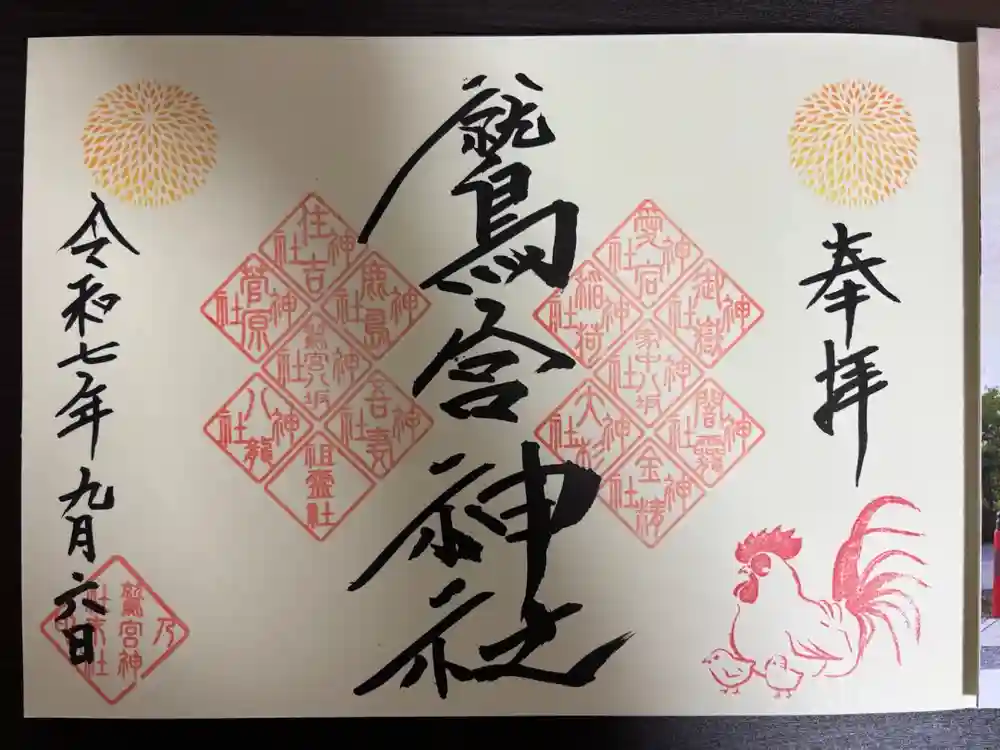 奉拝
愛宕神社
御嶽神社
稲荷神社
家中八坂神社
闇龗神社
大杉神社
金精神社
鷲宮神社
住吉神社
鹿島神社
菅原神社
鷲宮八坂神社
吾妻神社
八龍神社
祖霊社
令和七年九月六日